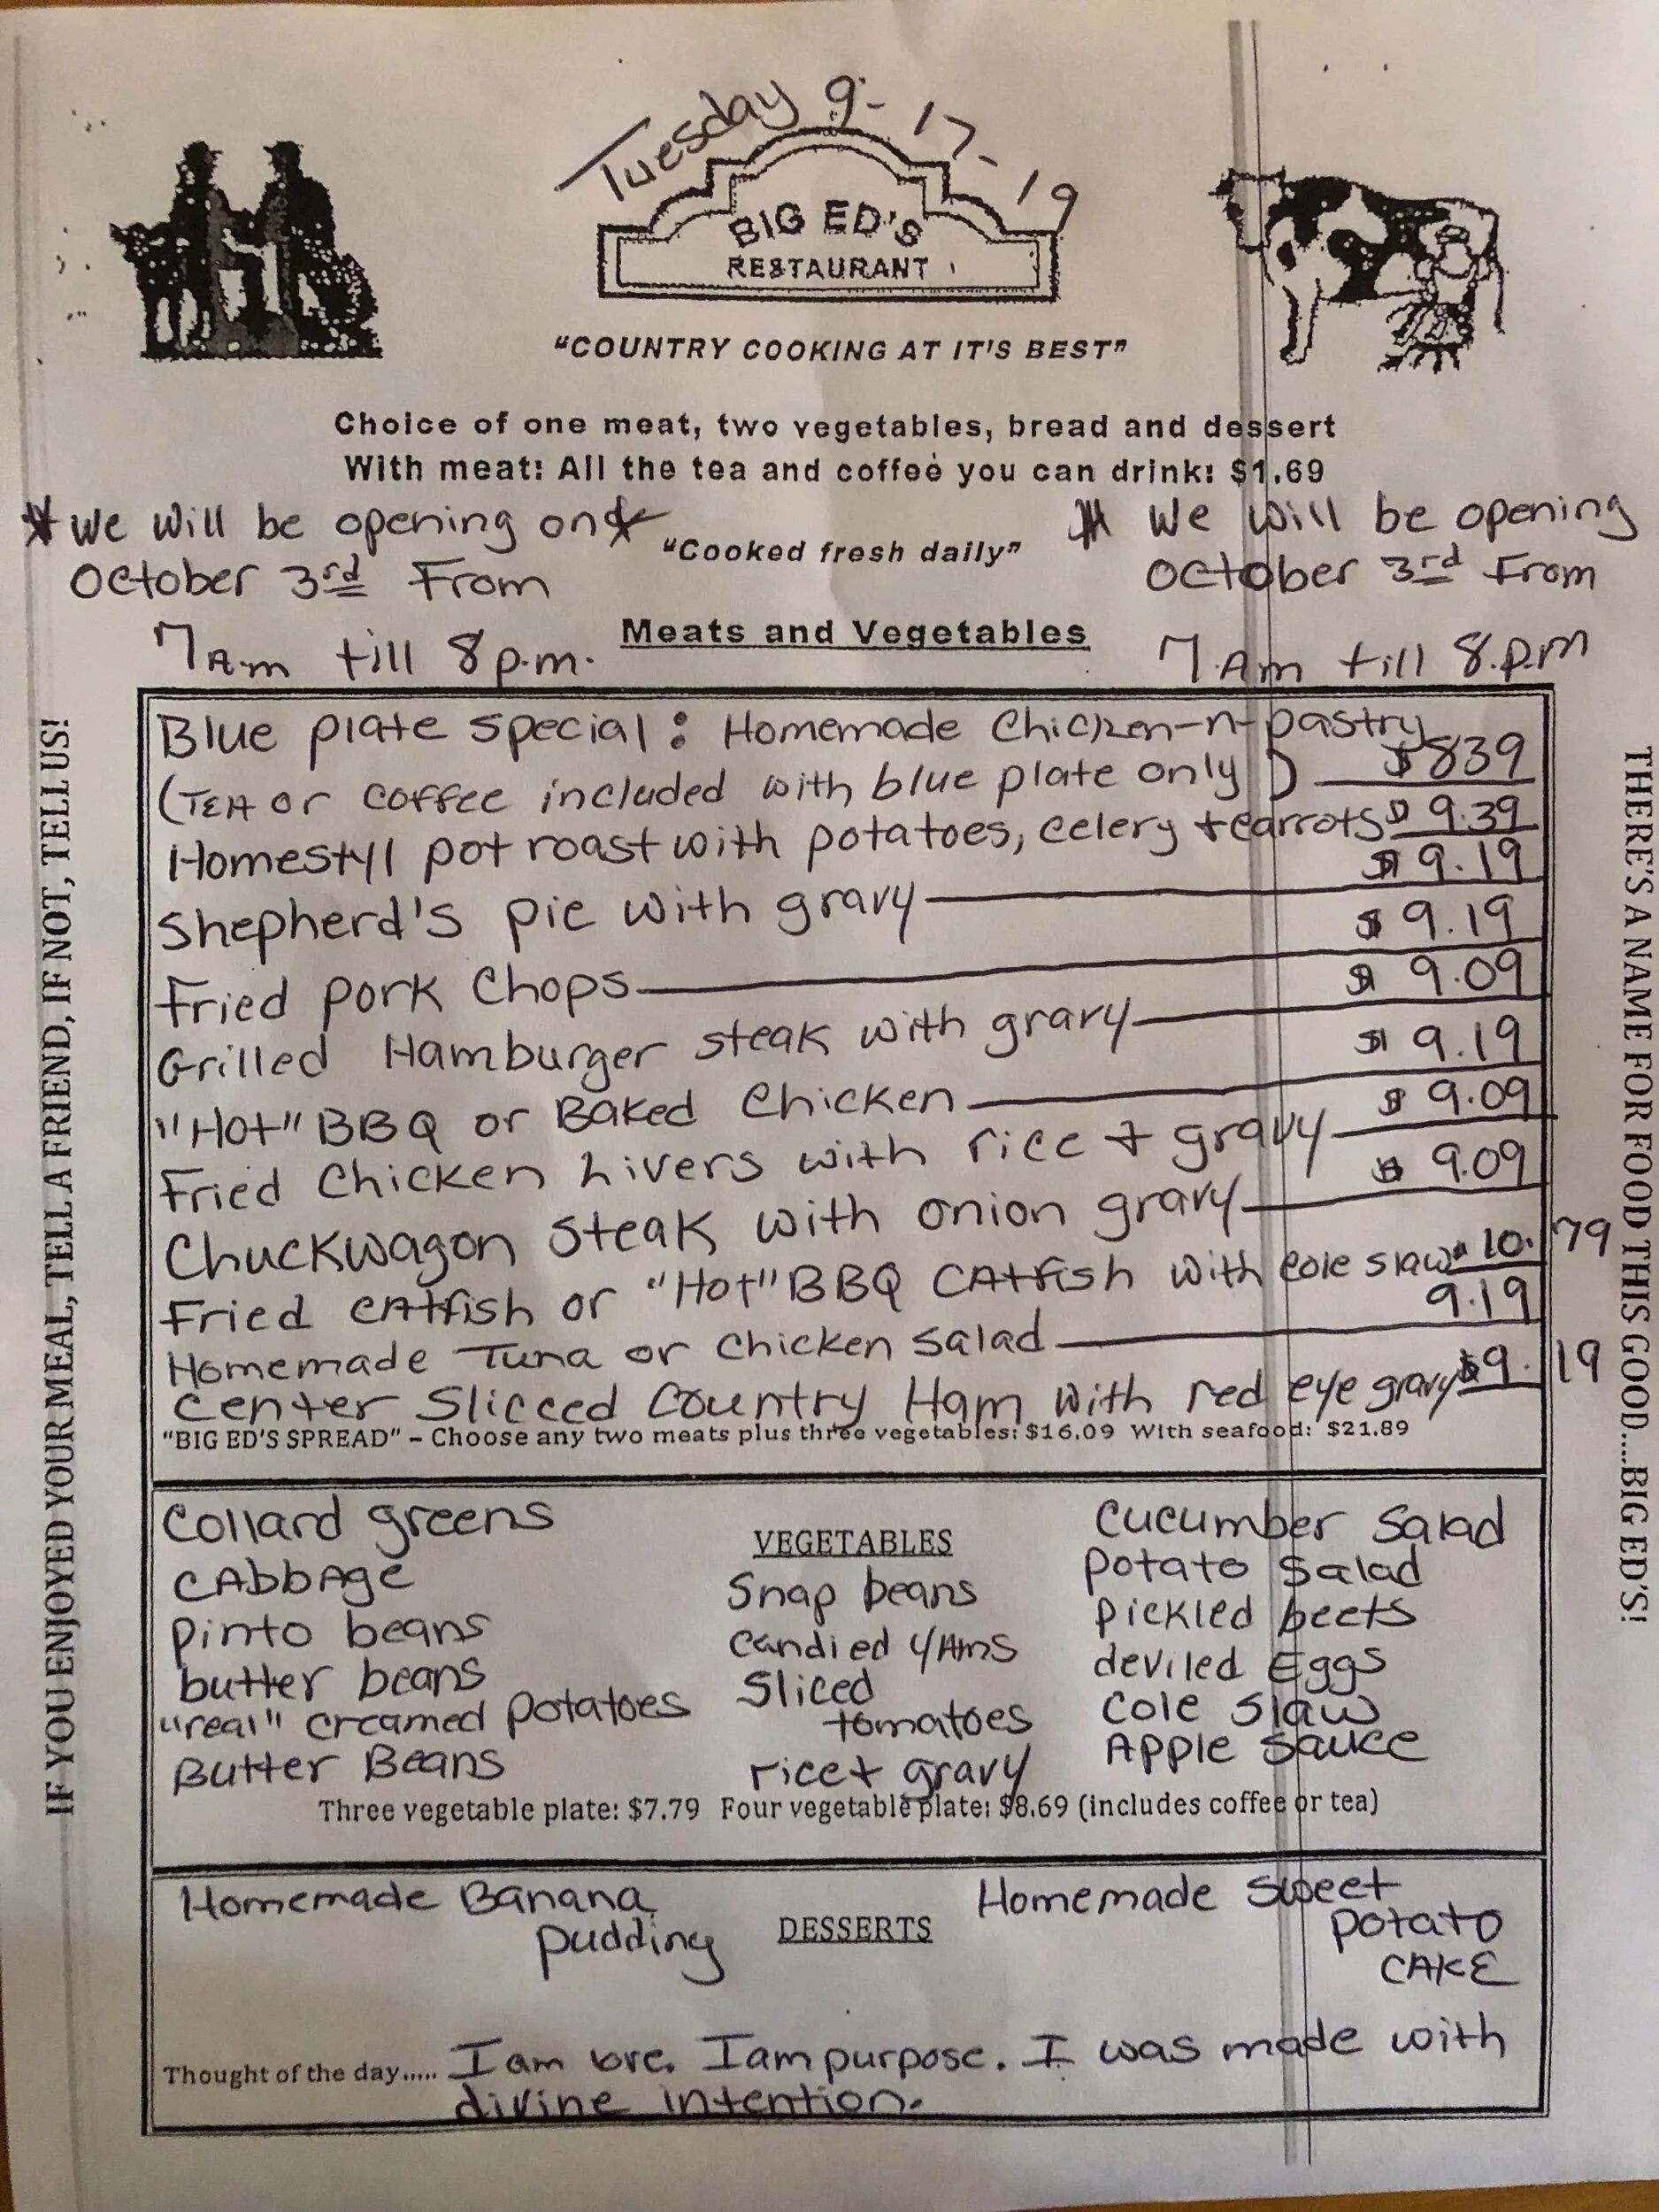 Tuesday 9-17-19
BIG ED'S
RESTAURANT
"COUNTRY COOKING AT IT'S BEST"
Choice of one meat, two vegetables, bread and dessert
With meat: All the tea and coffee you can drink: $1.69
* We will be opening on *
October 3rd From
7 A.m till 8 p.m.
"Cooked fresh daily"
* We will be opening
October 3rd From
7 Am till 8.p.m
Meats and Vegetables
Blue plate special: Homemade Chicken-n-pastry
(TEA or coffee included with blue plate only) $839
Homestyl pot roast with potatoes, celery + carrots $9.39
Shepherd's pie with gravy $9.19
Fried pork Chops $9.19
Grilled Hamburger steak with gravy $9.09
"Hot" BBQ or Baked Chicken $9.19
Fried Chicken Livers with rice + gravy $9.09
Chuckwagon steak with onion gravy $9.09
Fried catfish or "Hot" BBQ CAtfish with cole slaw $10.79
Homemade Tuna or Chicken Salad 9.19
Center Slicced Country Ham with red eye gravy $9.19
"BIG ED'S SPREAD" – Choose any two meats plus three vegetables: $16.09 With seafood: $21.89
Collard greens
CAbbAge
pinto beans
butter beans
"real" creamed potatoes
Butter Beans
VEGETABLES
Snap beans
Candied YAms
Sliced
tomatoes
rice + gravy
Cucumber Salad
potato Salad
pickled beets
deviled Eggs
Cole Slaw
Apple Sauce
Three vegetable plate: $7.79 Four vegetable plate: $8.69 (includes coffee or tea)
Homemade Banana
pudding
DESSERTS
Homemade Sweet
potato
CAKE
Thought of the day..... I am love. I am purpose. I was made with
divine intention.
IF YOU ENJOYED YOUR MEAL, TELL A FRIEND, IF NOT, TELL US!
THERE'S A NAME FOR FOOD THIS GOOD....BIG ED'S!